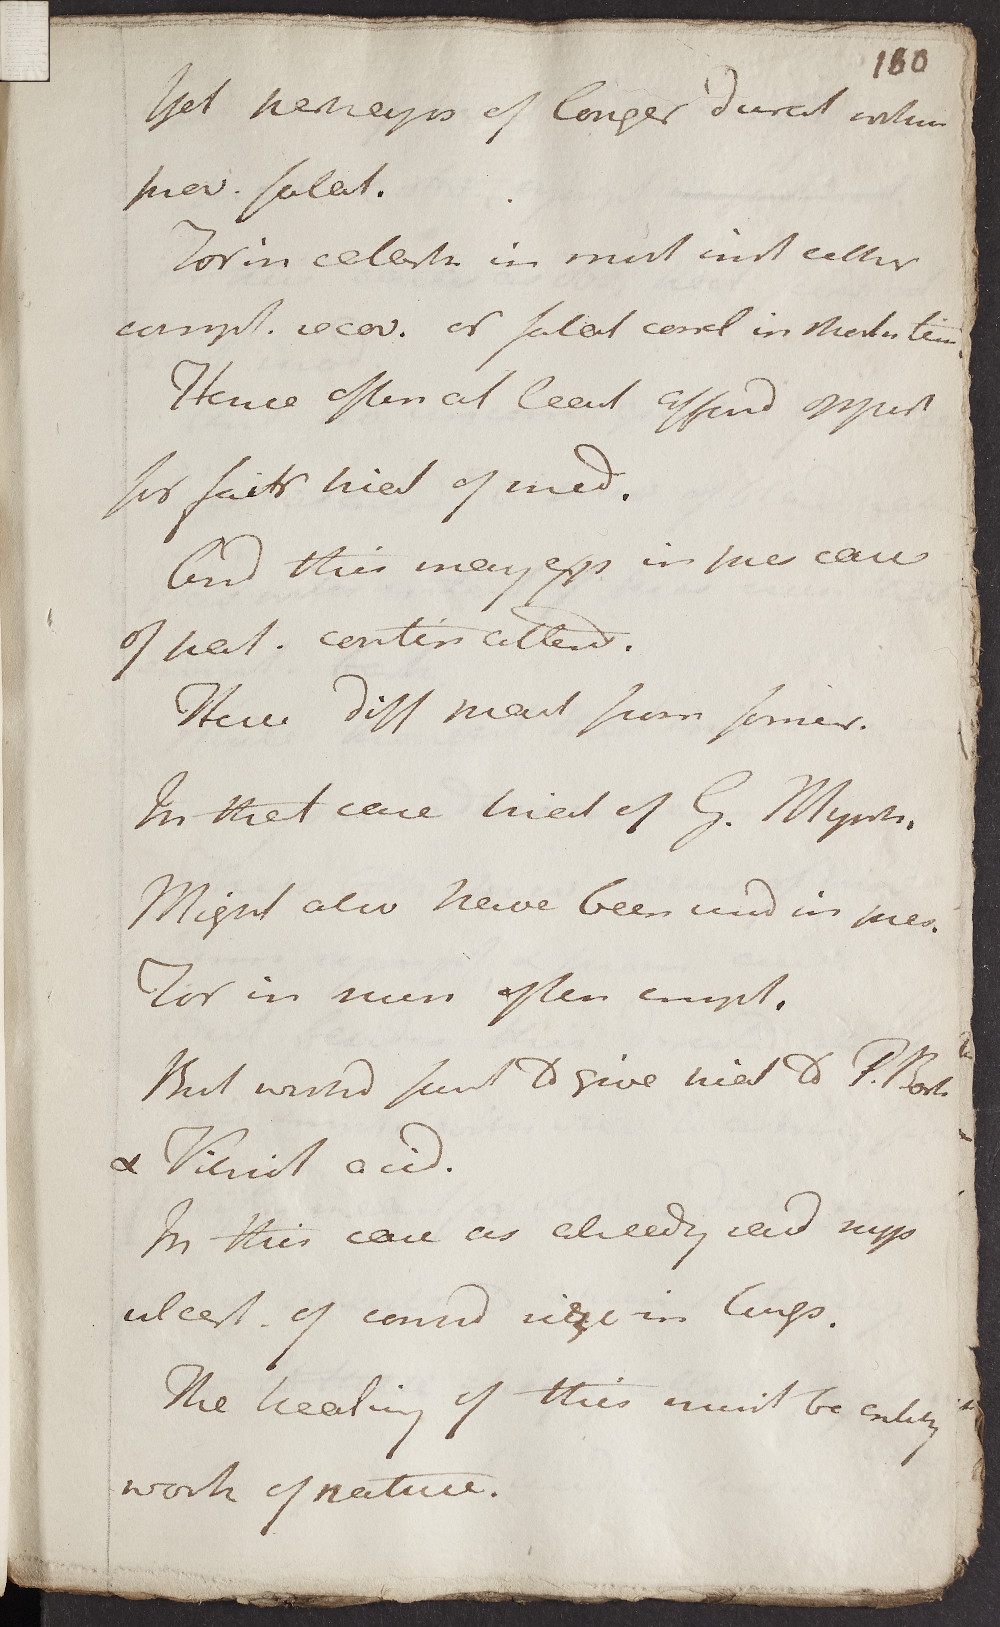 180
Yet perhaps of longer durat when
prov. fatal.
For in celeste in most inst either
compl. recov. or fatal concl in shorter time.
Hence often at least afford opport
for fair trial of med.
And this may exp in pres case
of pat. contin attend.
Here diff treat from former.
In that case trial of G. Myrrh.
Might also have been used in pres.
For in num often empl.
But wished first to give trial to P. Bark
& Vitriol acid.
In this case as already said supp
ulcerat. of consid size in lungs.
The healing of this must be entirely
work of nature.